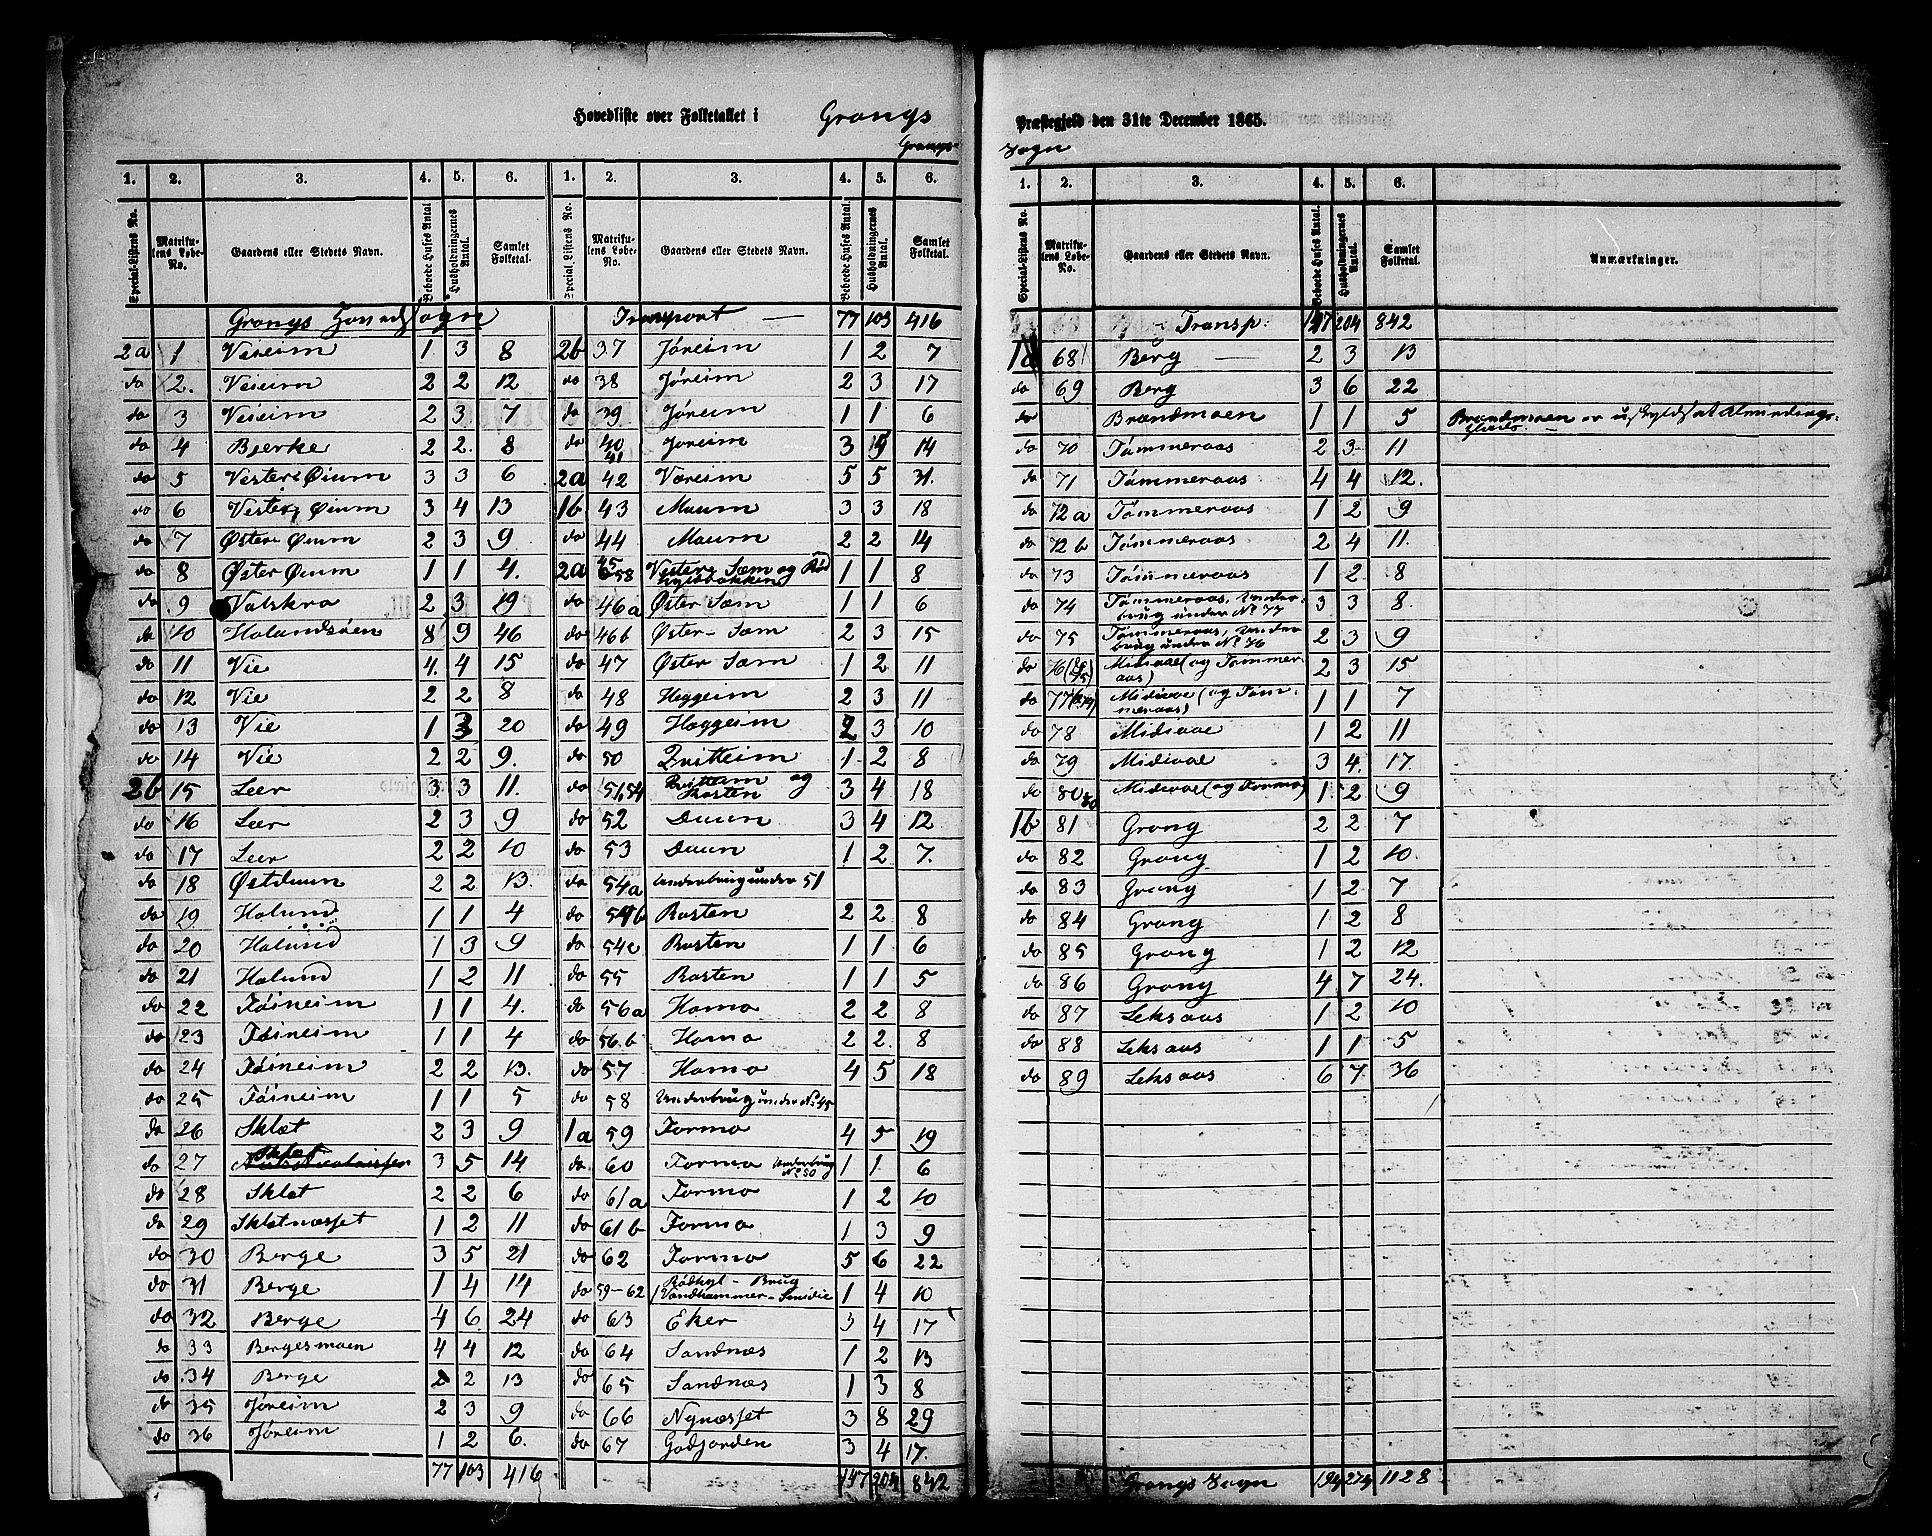 Hovedliste over Folketallet i Grongs Præstegjeld den 31te December 1865.
Grongs Sogn
1. 2. 3. 4. 5. 6. 1. 2. 3. 4. 5. 6.
Special-Listens No. Matrikulens Løbe-No. Gaardens eller Stedets Navn. Beboede Huses Antal. Husholdningernes Antal. Samlet Folketal.
Special-Listens No. Matrikulens Løbe-No. Gaardens eller Stedets Navn. Beboede Huses Antal. Husholdningernes Antal. Samlet Folketal.
Grongs Hovedsogn
2a 1 Veiem 1 3 8
do 2. Veiem 2 2 12
do 3 Veiem 2 3 7
do 4 Bjerke 2 2. 8
do 5 Vestre Øium 3 3 6
do 6 Vestre Øium 3 4 13
do 7 Østre Øium 2 3 9
do 8 Øster Øium 1 1 4.
do 9 Valskra 2 3 19
do 10 Halandsøen 8 9 46
do 11 Vie 4. 4 15
do 12 Vie 2 2 8
do 13 Vie 1 3 20
do 14 Vie 2 2 9.
2b 15 Leer 3 3 11.
do 16 Leer 2 3 9
do 17 Leer 2 2 10
do 18 Østduun 2 2 13.
do 19 Halund 1 1 4
do 20 Halund 1 3 9
do 21 Halund 1 2 11
do 22 Føineim 1 1 4.
do 23 Føineim 1 1 4
do 24 Føineim 2 2 13.
do 25 Føineim 1 1 5
do 26 Sklet 2 3 9
do 27 Sklet 3 5 14
do 28 Sklet 2 2 6
do 29 Skletnæsset 1 2 11
do 30 Berge 3 5 21
do 31 Berge 1 4 14
do 32 Berge 4 6 24
do 33 Bergesmoen 4 4 12
do 34 Berge 2 2 13
do 35 Jøreim 2 3 9
do 36 Jøreim 1 2 6.
77 103 416
Transport — 77 103 416
2b 37 Jøreim 1 2 7
do 38 Jøreim 2 3 17
do 39 Jøreim 1 1 6
do 40 41 Jøreim 3 4 14
2a 42 Vareim 5 5 31.
1b 43 Maum 3 3 18
do 44 Maum 2 2 14
2a 45 58 Vestere Sæm og Rød hylsbakken 1 1 8
do 46a Øster Sæm 1 1 6
do 46b Øster-Sæm 2 3 15
do 47 Øster Sæm 1 2 11
do 48 Heggeim 2 3 11
do 49 Heggeim 2 3 10
do 50 Duitteim 1 2 8
do 51,54 og Rosten 3 4 18
do 52 Duun 3 4 12
do 53 Duun 1 2 7.
do 54a Underbrug under 51
do 54b Rosten 2 2 8
do 54c Rosten 1 1 6
do 55 Rosten 1 1 5
do 56a Homo 2 2 8
do 56.b Homo 2 2. 8
do 57 Homo 4 5 18
do 58 Underbrug under No 45
1a 59 Formo 4 5 19
do. 60 Formo Underbrug No 80 1 1. 6
do 61a Formo 1 2 10
do 61b Formo 1 3 9
do 62 Formo 5 6 22
do 59-62 Rødhyl-Brug Vandhammer-Smidie 1 4 10
do 63 Eker 3 4 17
do 64 Sandnæs 1 2 13
do 65 Sandnæs 1 3 8
do 66 Nynæsset 3 8 29
do 67 Godjorden 3 4 17.
147 204 842
1. 2. 3. 4. 5. 6.
Special-Listens No. Matrikulens Løbe-No. Gaardens eller Stedets Navn. Beboede Huses Antal. Husholdningernes Antal. Samlet Folketal. Anmærkninger.
Transp: 147 204 842
1a 68 Berg — 2 3 13
do 69 Berg 3 6 22
do Brandmoen 1 1 5 Brandmoen er uskyldsat Almindings-
do 70 Tømmeraas 2 3 11
do 71 Tømmeraas 4 4 12.
do 72 a Tømmeraas 1 2 9
do 72 b Tømmeraas 2 4 11.
do 73 Tømmeraas 1 2 8
do 74 Tømmeraas, Underbrug under No 77 3 3 8.
do 75 Tømmeraas, Underbrug under No 76 2 3 9
do 76 Midivae (og Tømmeraas) 2 3 15
do 77 Midivae (og Tømmeraas) 1 1 7
do 78 Midivae 1 2 11
do 79 Midivae 3 4. 17.
do 80 Midivae (og Formo) 1. 2 9
1b 81 Grong 2 2 7
do 82 Grong 1 2 10.
do 83 Grong 1 2 7
do 84 Grong 1 2 8
do 85 Grong 1 2 12
do 86 Grong 4 7 24.
do 87 Leksaas 1 2 10
do 88 Leksaas 1 1 5
do 89 Leksaas 6 7. 36
Grongs Sogn 194 274 1128